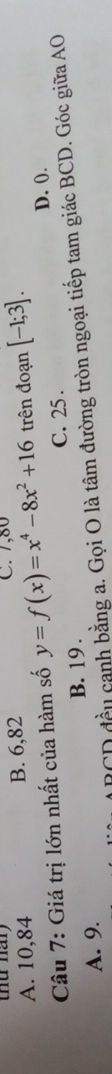 C. 7,80
A. 10,84 B. 6,82
Câu 7: Giá trị lớn nhất của hàm số y = f(x) = x⁴ − 8x² + 16 trên đoạn [−1;3].
A. 9. B. 19. C. 25. D. 0.
ABCD đều cạnh bằng a. Gọi O là tâm đường tròn ngoại tiếp tam giác BCD. Góc giữa AO